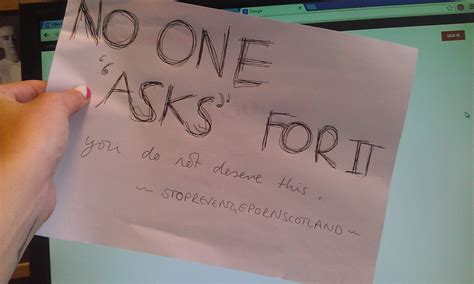 Google
SIGN IN
NO ONE
"ASKS" FOR IT
you do not deserve this.
~ STOPREVENGEPORNSCOTLAND ~